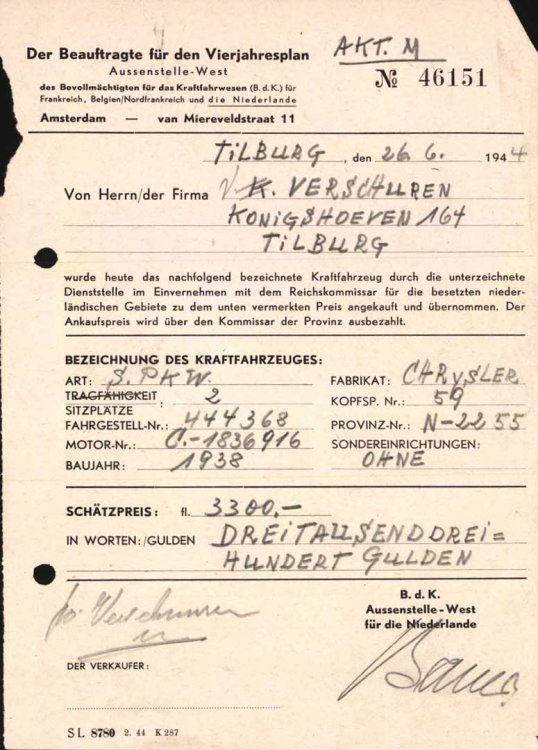 Der Beauftragte für den Vierjahresplan
Aussenstelle-West
des Bevollmächtigten für das Kraftfahrwesen (B.d.K.) für
Frankreich, Belgien/Nordfrankreich und die Niederlande
Amsterdam — van Miereveldstraat 11
AKT. M
№ 46151
TILBURG, den 26.6. 1944
Von Herrn/der Firma V. K. VERSCHUREN
KONIGSHOEVEN 164
TILBURG
wurde heute das nachfolgend bezeichnete Kraftfahrzeug durch die unterzeichnete
Dienststelle im Einvernehmen mit dem Reichskommissar für die besetzten nieder-
ländischen Gebiete zu dem unten vermerkten Preis angekauft und übernommen. Der
Ankaufspreis wird über den Kommissar der Provinz ausbezahlt.
BEZEICHNUNG DES KRAFTFAHRZEUGES:
ART: S. PKW. FABRIKAT: CHRYSLER
TRAGFÄHIGKEIT
SITZPLÄTZE : 2 KOPFSP. Nr.: 59
FAHRGESTELL-Nr.: 444368 PROVINZ-Nr.: N-2255
MOTOR-Nr.: C.-1836916 SONDEREINRICHTUNGEN:
BAUJAHR: 1938 OHNE
SCHÄTZPREIS: fl. 3300,-
IN WORTEN:/GULDEN DREITAUSENDDREI=
HUNDERT GULDEN
B. d. K.
Aussenstelle-West
für die Niederlande
DER VERKÄUFER:
SL 8780 2. 44 K 287